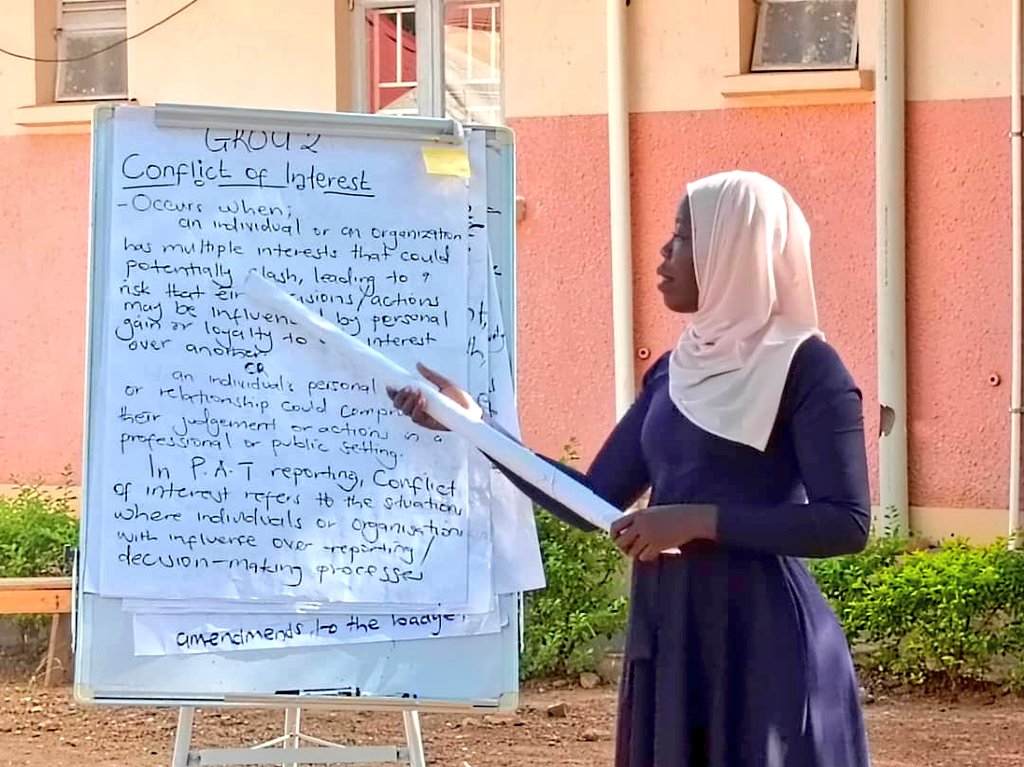 GROU 2
Conflict of Interest
- Occurs when;
an individual or an organization
has multiple interests that could
potentially clash, leading to a
risk that
may be by personal
gain or loyalty to interest
over another
OR
an individual's personal
or relationship could
their judgement or actions in a
professional or public setting.
In P.A.T reporting, Conflict
of interest refers to the situations
where individuals or organisations
with influence over reporting /
decision-making processes
amendments to the